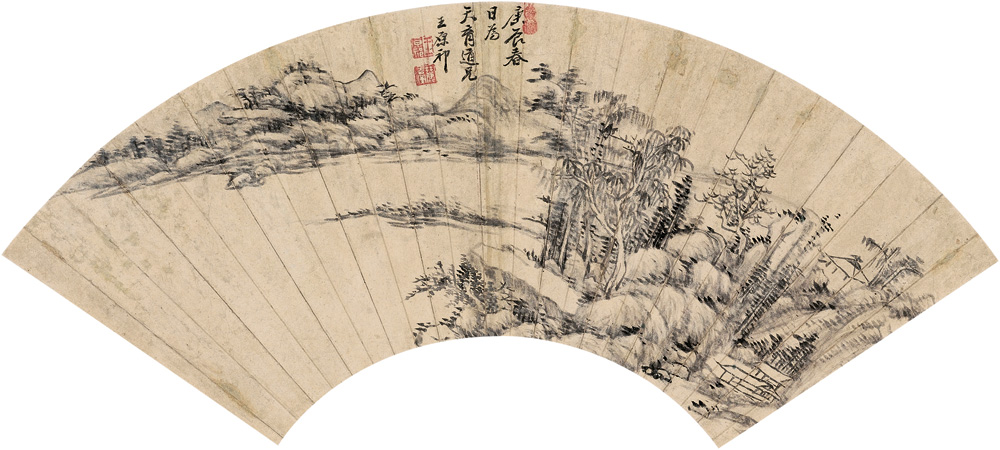 庚辰春
日為
天育道兄
王原祁